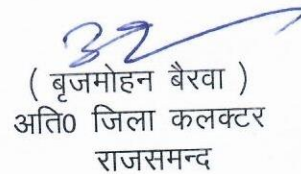 ( बृजमोहन बैरवा )
अति0 जिला कलक्टर
राजसमन्द